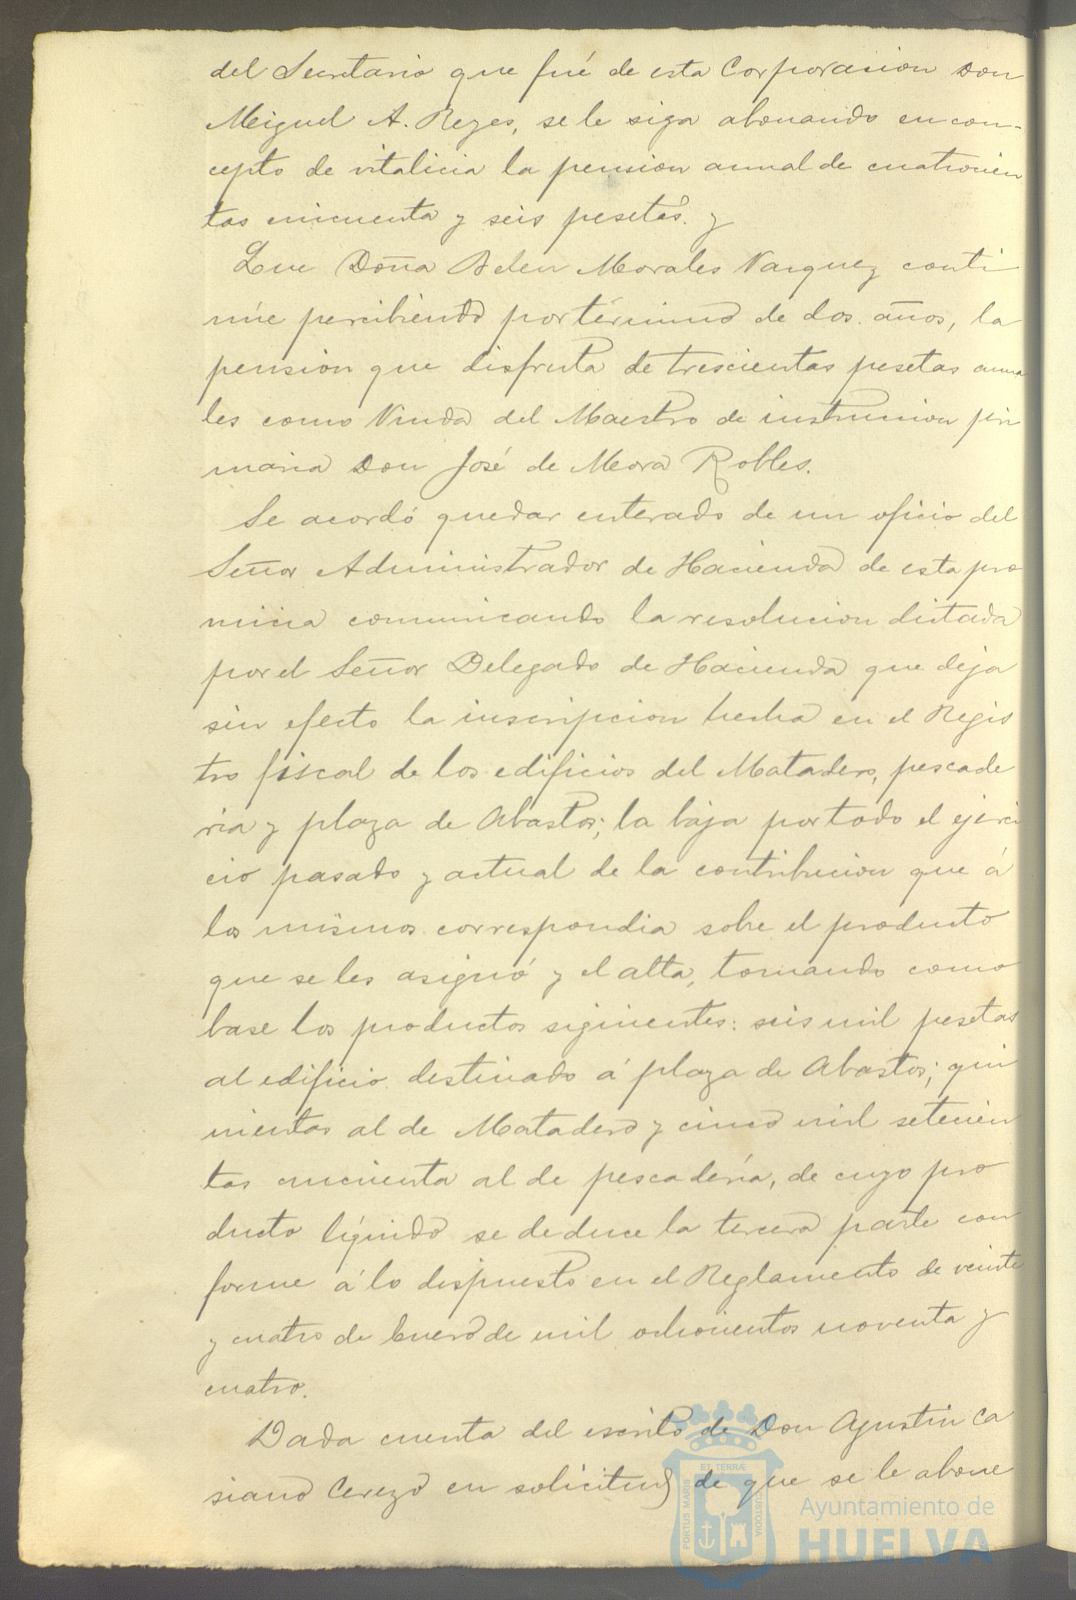 del Secretario que fué de esta Corporacion Don
Miguel A. Reyes, se le siga abonando en con-
cepto de vitalicia la pension anual de cuatrocien
tas cincuenta y seis pesetas. y
Que Doña Belen Morales Vazquez conti
núe percibiendo por término de dos años, la
pension que disfruta de trescientas pesetas anua
les como Viuda del Maestro de instruccion pri
maria Don José de Mora Robles.
Se acordó quedar enterado de un oficio del
Señor Administrador de Hacienda de esta pro
vincia comunicando la resolucion dictada
por el Señor Delegado de Hacienda que deja
sin efecto la inscripcion hecha en el Regis
tro fiscal de los edificios del Matadero, pescade
ria y plaza de Abastos; la baja por todo el ejerci
cio pasado y actual de la contribucion que á
los mismos correspondia sobre el producto
que se les asignó y el alta, tomando como
base los productos siguientes: seis mil pesetas
al edificio destinado á plaza de Abastos; qui
nientas al de Matadero y cinco mil setecien
tas cincuenta al de pescadería, de cuyo pro
ducto líquido se deduce la tercera parte con
forme á lo dispuesto en el Reglamento de veinte
y cuatro de Enero de mil ochocientos noventa y
cuatro.
Dada cuenta del escrito de Don Agustin Ca
siano Cerezo en solicitud de que se le abone
ET TERRÆ
PORTUS MARIS
CUSTODIA
Ayuntamiento de
HUELVA